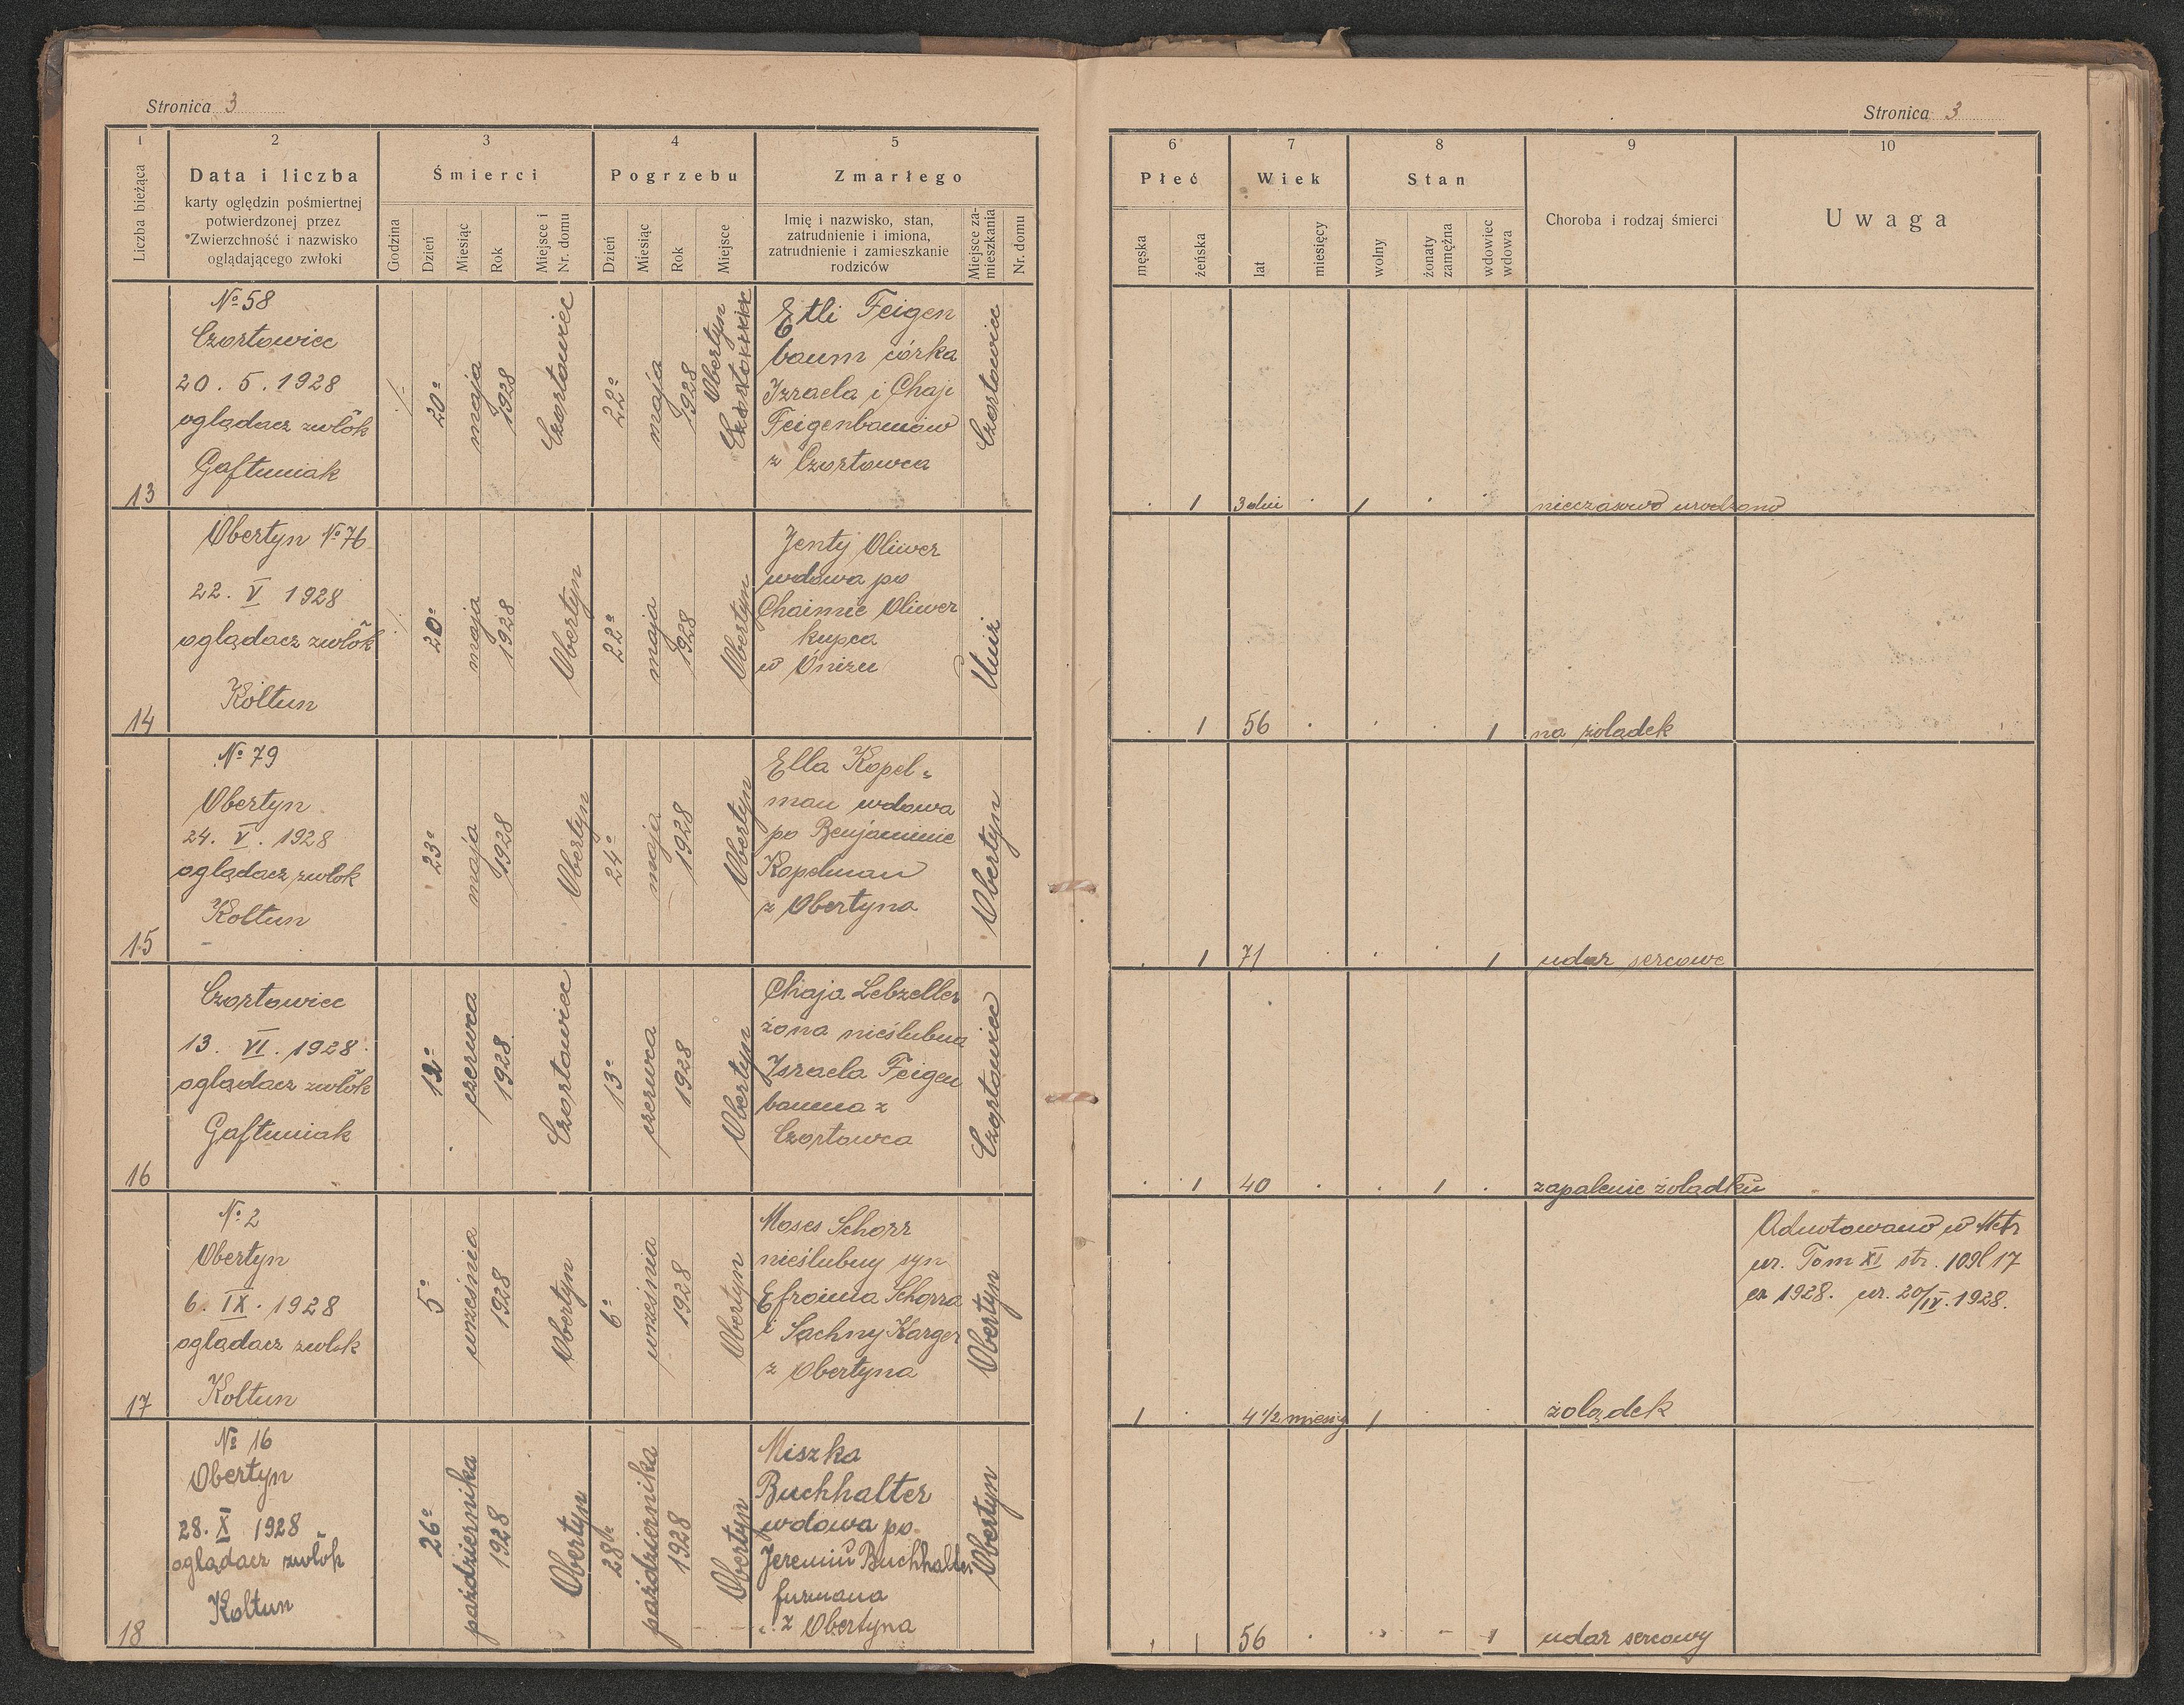 Stronica 3
1 2 3 4 5
Liczba bieżąca
Data i liczba
karty oględzin pośmiertnej
potwierdzonej przez
Zwierzchność i nazwisko
oglądającego zwłoki
Śmierci
Godzina Dzień Miesiąc Rok Miejsce i Nr. domu
Pogrzebu
Dzień Miesiąc Rok Miejsce
Zmarłego
Imię i nazwisko, stan,
zatrudnienie i imiona,
zatrudnienie i zamieszkanie
rodziców
Miejsce zamieszkania
Nr. domu
13
№ 58
Czortowiec
20. 5. 1928
oglądacz zwłok
Gaftuniak
20º maja 1928 Czortowiec
22º maja 1928 Obertyn
Etli Feigen
baum córka
Izraela i Chaji
Feigenbaumów
z Czortowca
Czortowiec
14
Obertyn № 76
22. V 1928
oglądacz zwłok
Kołtun
20º maja 1928 Obertyn
22º maja 1928 Obertyn
Jenty Oliwer
wdowa po
Chaimie Oliwer
kupca
w Uniżu
Uniż
15
№ 79
Obertyn
24. V. 1928
oglądacz zwłok
Kołtun
23º maja 1928 Obertyn
24º maja 1928 Obertyn
Ella Kopel-
man wdowa
po Benjaminie
Kopelman
z Obertyna
Obertyn
16
Czortowiec
13. VI. 1928
oglądacz zwłok
Gaftuniak
12º czerwca 1928 Czortowiec
13º czerwca 1928 Obertyn
Chaja Lebzelter
żona nieślubna
Israela Feigen
bauma z
Czortowca
Czortowiec
17
№ 2
Obertyn
6. IX. 1928
oglądacz zwłok
Kołtun
5º września 1928 Obertyn
6º września 1928 Obertyn
Moses Schorr
nieślubny syn
Efroima Schorra
i Sachny Karger
z Obertyna
Obertyn
18
№ 16
Obertyn
28. X 1928
oglądacz zwłok
Kołtun
26º października 1928 Obertyn
28º października 1928 Obertyn
Miszka
Buchhalter
wdowa po
Jeremiu Buchhalter
furmana
z Obertyna
Obertyn
Stronica 3
6 7 8 9 10
Płeć
męska żeńska
Wiek
lat miesięcy
Stan
wolny żonaty zamężna wdowiec wdowa
Choroba i rodzaj śmierci
Uwaga
1 3 dni 1 nieczasowo urodzono
1 56 1 na żołądek
1 71 1 udar sercowe
1 40 1 zapalenie żołądku
Adnotowano w Metr
ur. Tom XI str. 109 l 17
ex 1928. ur. 20/IV. 1928.
1 4 1/2 miesię 1 żołądek
1 56 1 udar sercowy